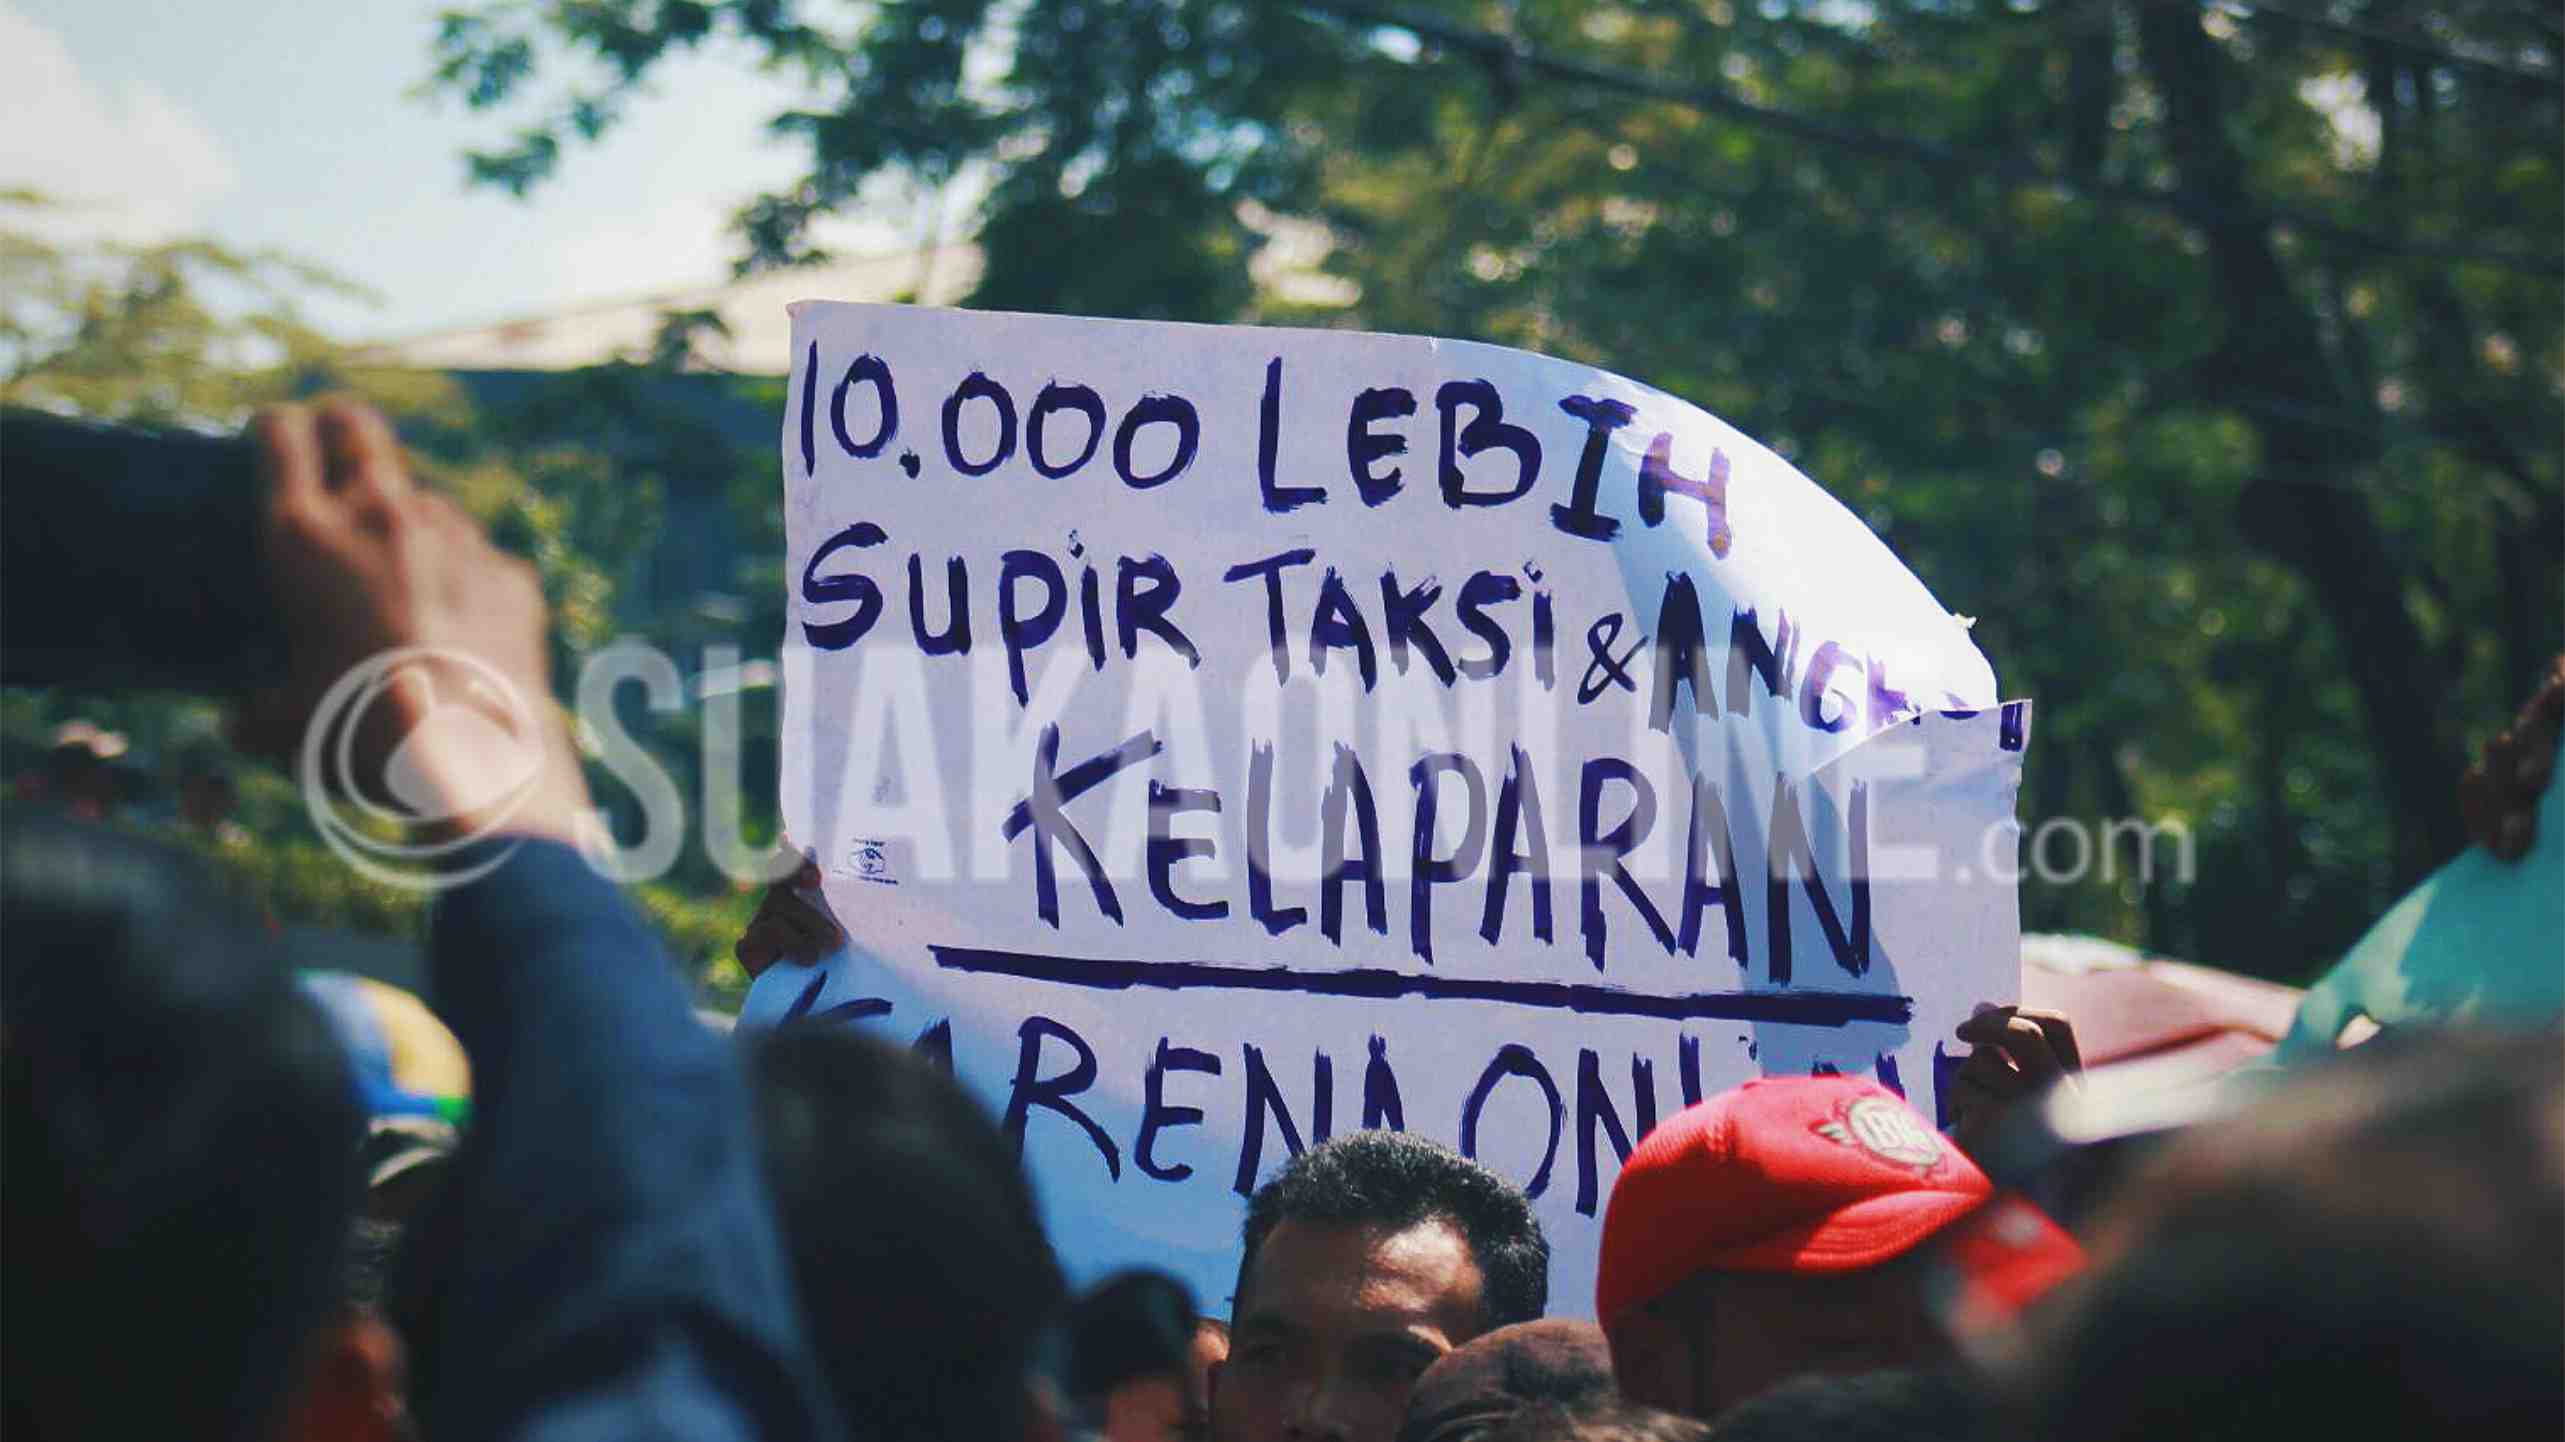 10.000 LEBIH
SUPIR TAKSI & ANGKOT
KELAPARAN
KARENA ONLINE
SUAKAONLINE.com